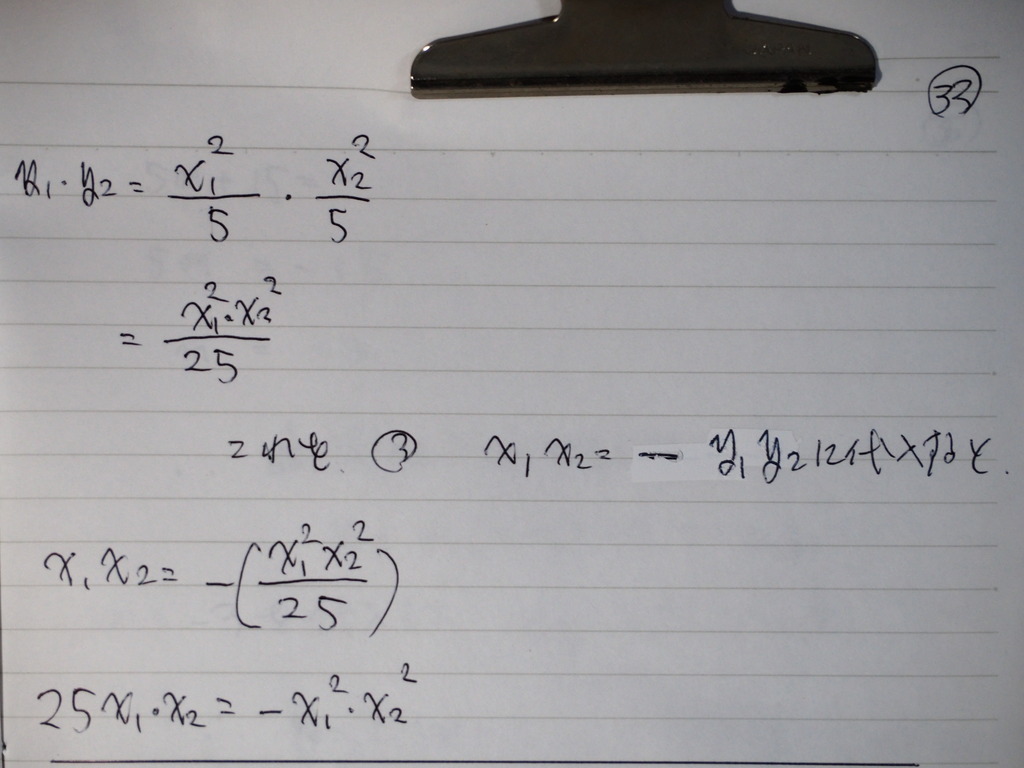 ㉝
y₁・y₂ = x₁²/5 ・ x₂²/5
= x₁²・x₂²/25
これを ③ x₁x₂ = − y₁y₂ に代入すると
x₁x₂ = −(x₁²x₂²/25)
25x₁・x₂ = −x₁²・x₂²